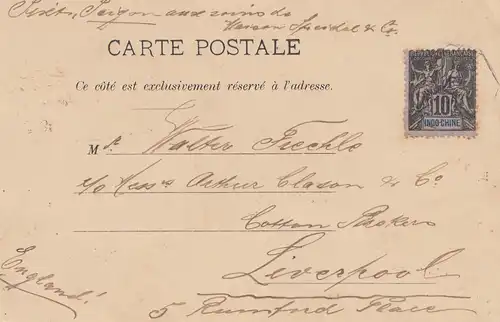 Saigon aux soins de
Maison Speidel & Co.
CARTE POSTALE
Ce côté est exclusivement réservé à l'adresse.
10
INDO-CHINE
Mr. Walter Fiechle
c/o Messrs Arthur Clason & Co
Cotton Brokers
Liverpool
England!
5 Rumford Place